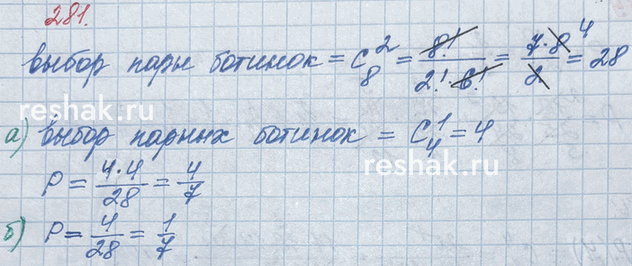 281.
выбор пары ботинок = C₈² = 8!/(2!·6!) = 7·8/2 = 28 4
reshak.ru
а) выбор парных ботинок = C₄¹ = 4
reshak.ru
P = 4·4/28 = 4/7
б) P = 4/28 = 1/7